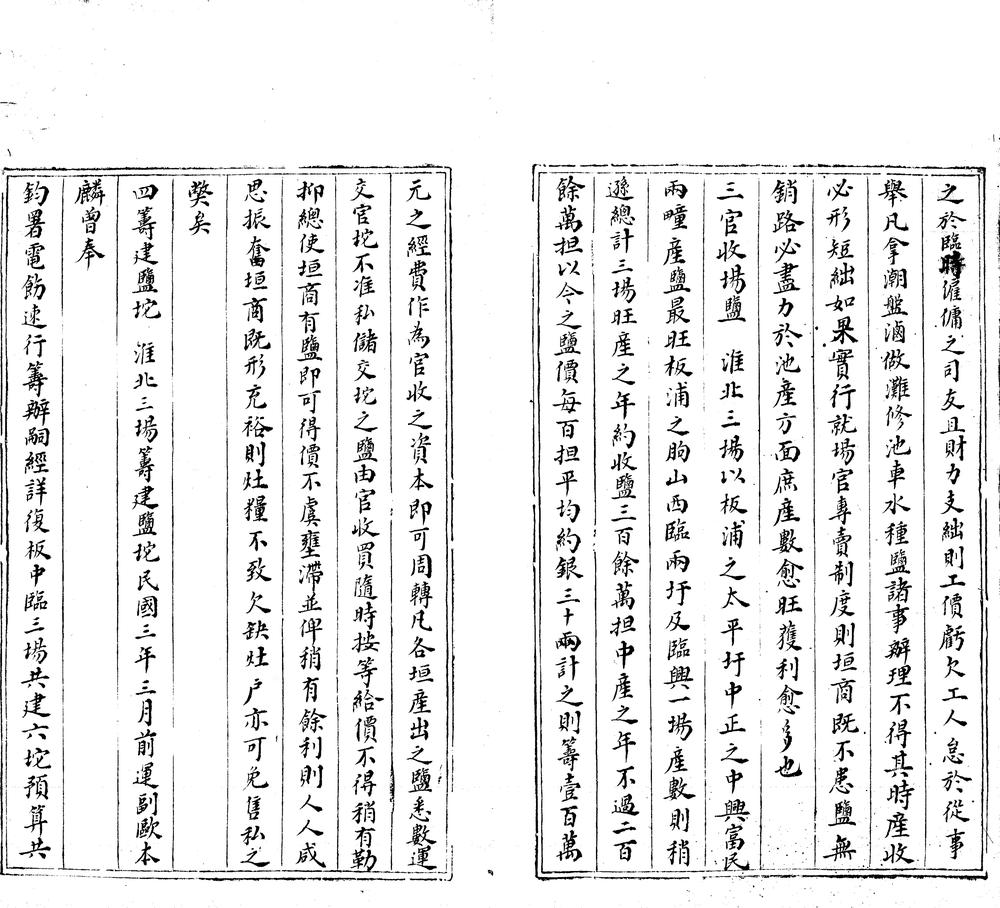 之於臨時雇傭之司友且財力支絀則工價虧欠工人怠於從事
舉凡拿潮盤滷做灘修池車水種鹽諸事辦理不得其時產收
必形短絀如果實行就場官專賣制度則垣商既不患鹽無
銷路必盡力於池產方面庶產數愈旺獲利愈多也
三官收場鹽　淮北三場以板浦之太平圩中正之中興富民
兩疃產鹽最旺板浦之朐山西臨兩圩及臨興一場產數則稍
遜總計三場旺產之年約收鹽三百餘萬担中產之年不過二百
餘萬担以今之鹽價每百担平均約銀三十兩計之則籌壹百萬
元之經費作為官收之資本即可周轉凡各垣產出之鹽悉數運
交官坨不准私儲交坨之鹽由官收買隨時按等給價不得稍有勒
抑總使垣商有鹽即可得價不虞壅滯並俾稍有餘利則人人咸
思振奮垣商既形充裕則灶糧不致欠缺灶户亦可免售私之
獘矣
四籌建鹽坨　淮北三場籌建鹽坨民國三年三月前運副歐本
麟曾奉
鈞署電飭速行籌辦嗣經詳復板中臨三場共建六坨預算共